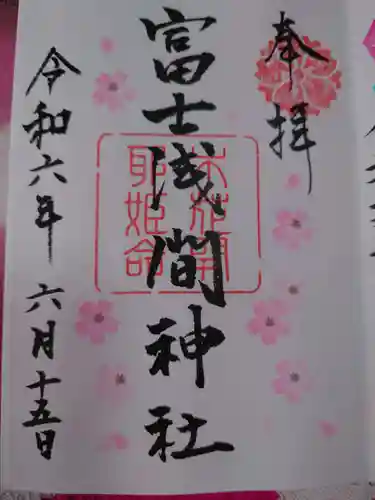 奉拝
富士浅間神社
木花開
耶姫命
令和六年 六月十五日